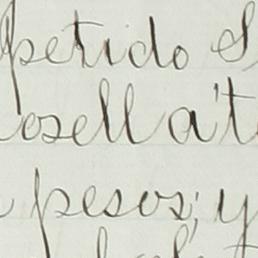 petido S
osell a't
pesos; y